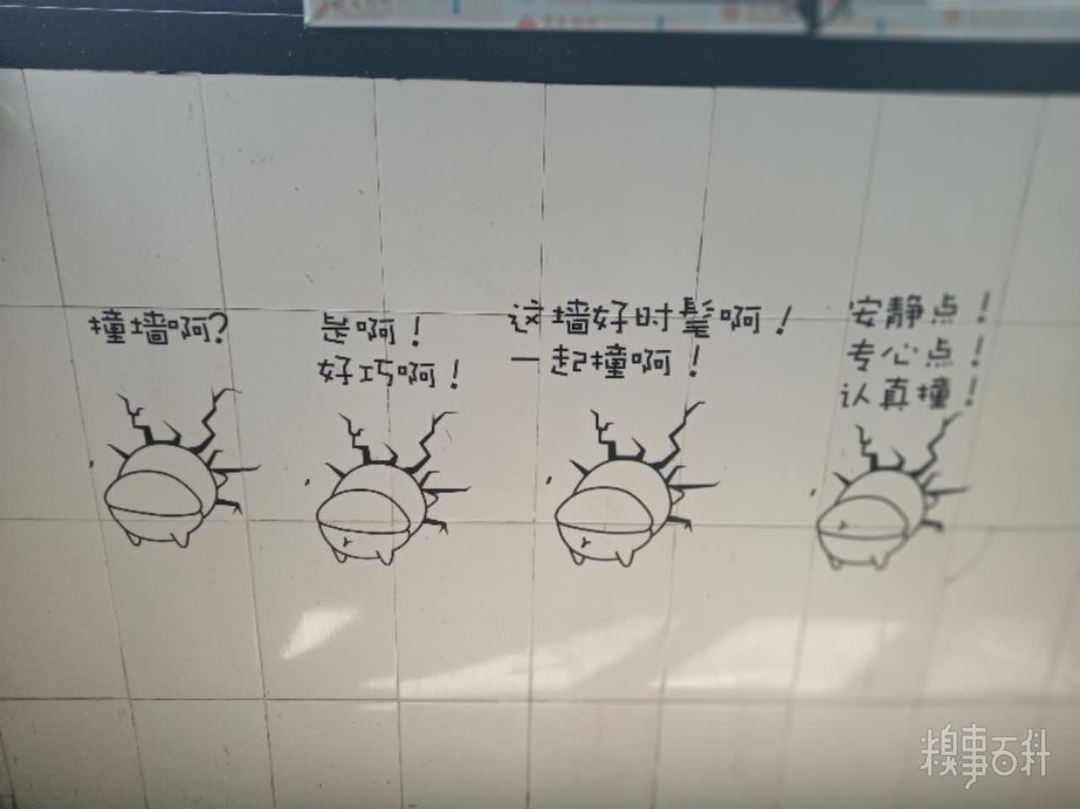 撞墙啊?
是啊！
好巧啊！
这墙好时髦啊！
一起撞啊！
安静点！
专心点！
认真撞！
糗事百科